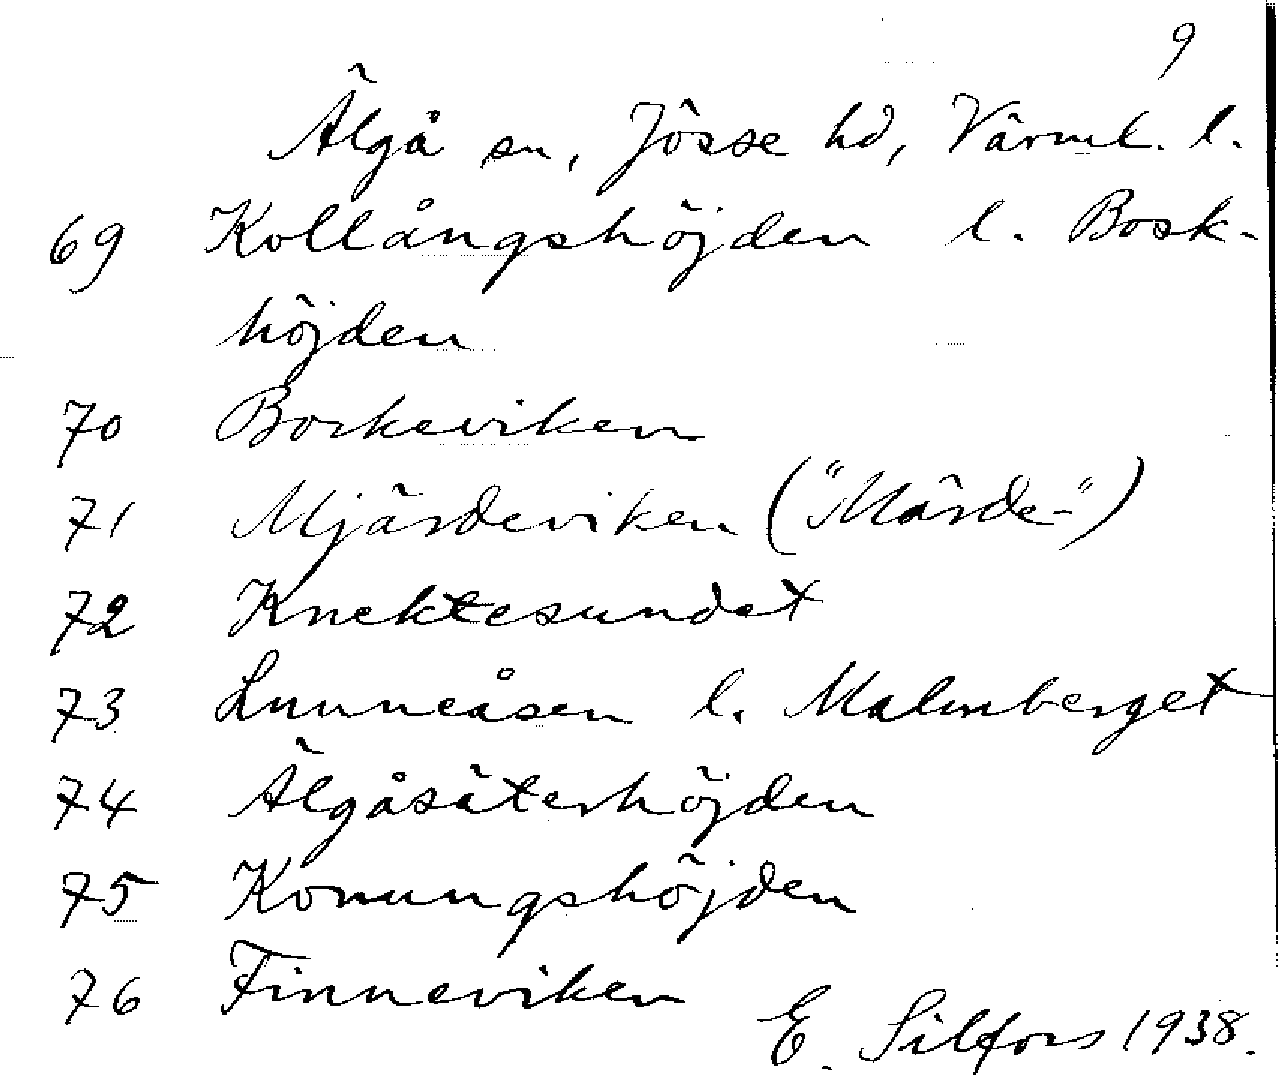 9
Älgå sn, Jösse hd, Värml. l.
69 Kollångshöjden l. Bosk-
höjden
70 Boskeviken
71 Mjärdeviken ("Märde-")
72 Knektesundet
73 Lunneåsen l. Malmberget
74 Älgåsäterhöjden
75 Konungshöjden
76 Finneviken
E. Silfors 1938.